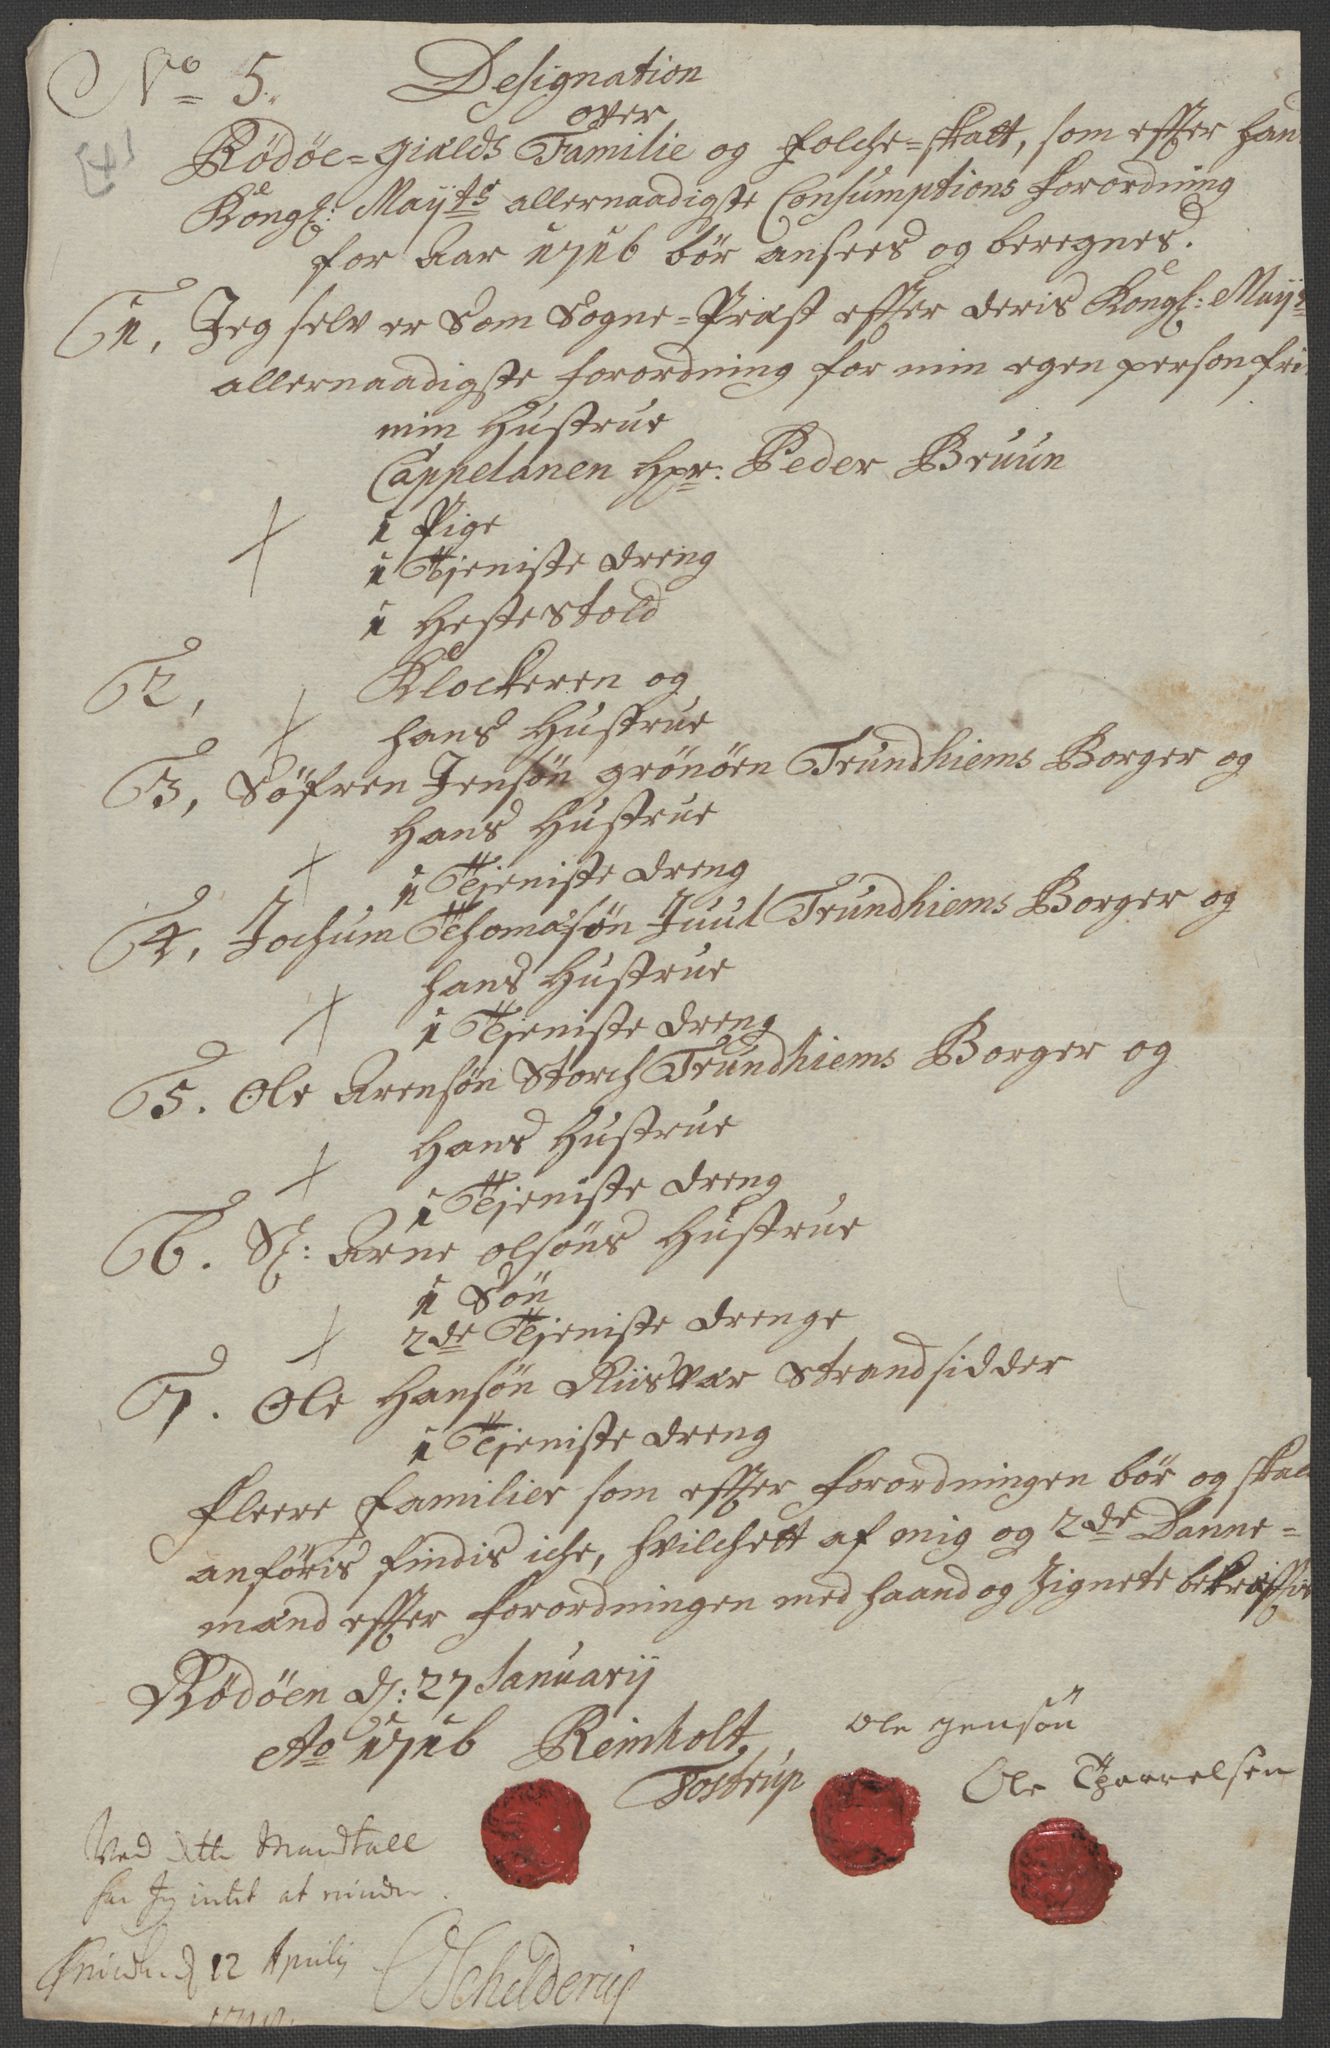 No 5. Designation
over
Rödöe=gialds Familie og folche=skatt, som effter Han
Kongl: Mayts allernaadigste Consumptions forordning
for Aar 1716 bör ansees og beregnes.
1, Jeg selv er Som Sogne=Præst effter deris Kongl: Mayts
allernaadigste forordning for min egen person fri
min Hustrue
Cappelanen Hr: Peder Bruun
1 Pige
1 Tjeniste dreng
1 Hestestold
2, Klockeren og
hans Hustrue
3, Söfren Jensön grönöen Trundhiems Borger og
Hans Hustrue
1 Tjeniste dreng
4, Jochum Thomasön Juul Trundhiems Borger og
hans Hustrue
1 Tjeniste dreng
5. Ole Arensön Storch Trundhiems Borger og
Hans Hustrue
1 Tjeniste dreng
6. Sl: Arne olsöns Hustrue
1 Sön
2de Tjeniste drenge
7. Ole Hansön Riisvær Strandsidder
1 Tjeniste dreng
fleere familier som effter forordningen bör og skal
anföris findis iche, hvilchett af mig og 2de Danne=
mænd effter forordningen med haand og Zignete bekræffte
Rödöen d: 27 Januarij
Ao 1716 Reinholt
Tostrup
Ole jensön
Ole Tharrelsen
Ved dette Mandtall
har Jeg intet at minde.
d 12 Aprilij
Schielderup